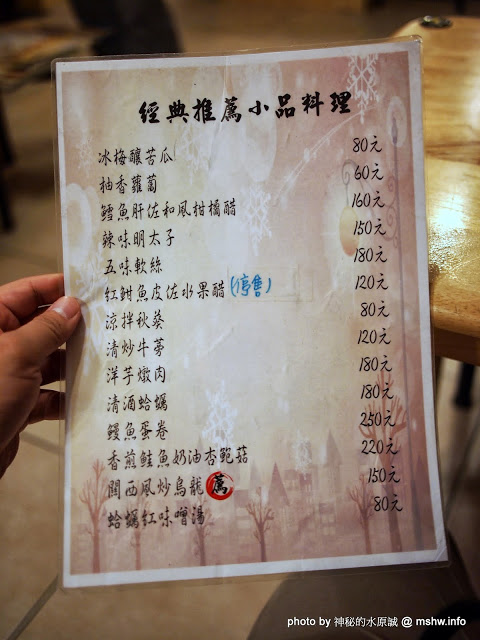 經典推薦小品料理
冰梅釀苦瓜 80元
柚香蘿蔔 60元
鱈魚肝佐和風柑橘醋 160元
辣味明太子 150元
五味軟絲 180元
紅魽魚皮佐水果醋(停售) 120元
涼拌秋葵 80元
清炒牛蒡 120元
洋芋燉肉 180元
清酒蛤蠣 180元
鰻魚蛋卷 250元
香煎鮭魚奶油杏鮑菇 220元
關西風炒烏龍 薦 150元
蛤蠣紅味噌湯 80元
photo by 神秘的水原誠 @ mshw.info